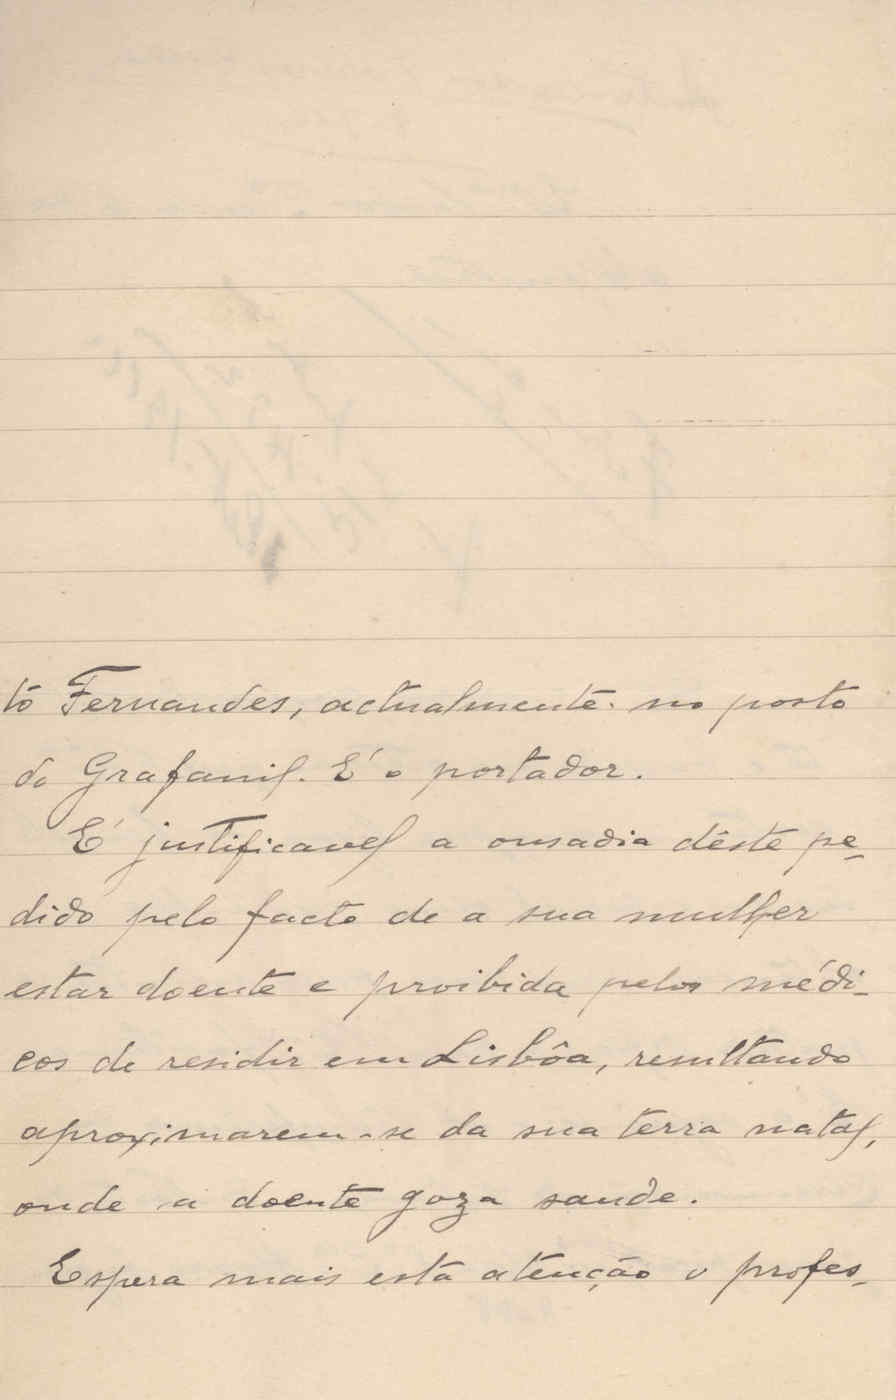 to Fernandes, actualmente no posto
do Grafanil. É o portador.
É justificavel a ousadia dêste pe-
dido pelo facto de a sua mulher
estar doente e proibida pelos médi-
cos de residir em Lisbôa, resultando
aproximarem-se da sua terra natal,
onde a doente goza saude.
Espera mais esta atenção o profes-